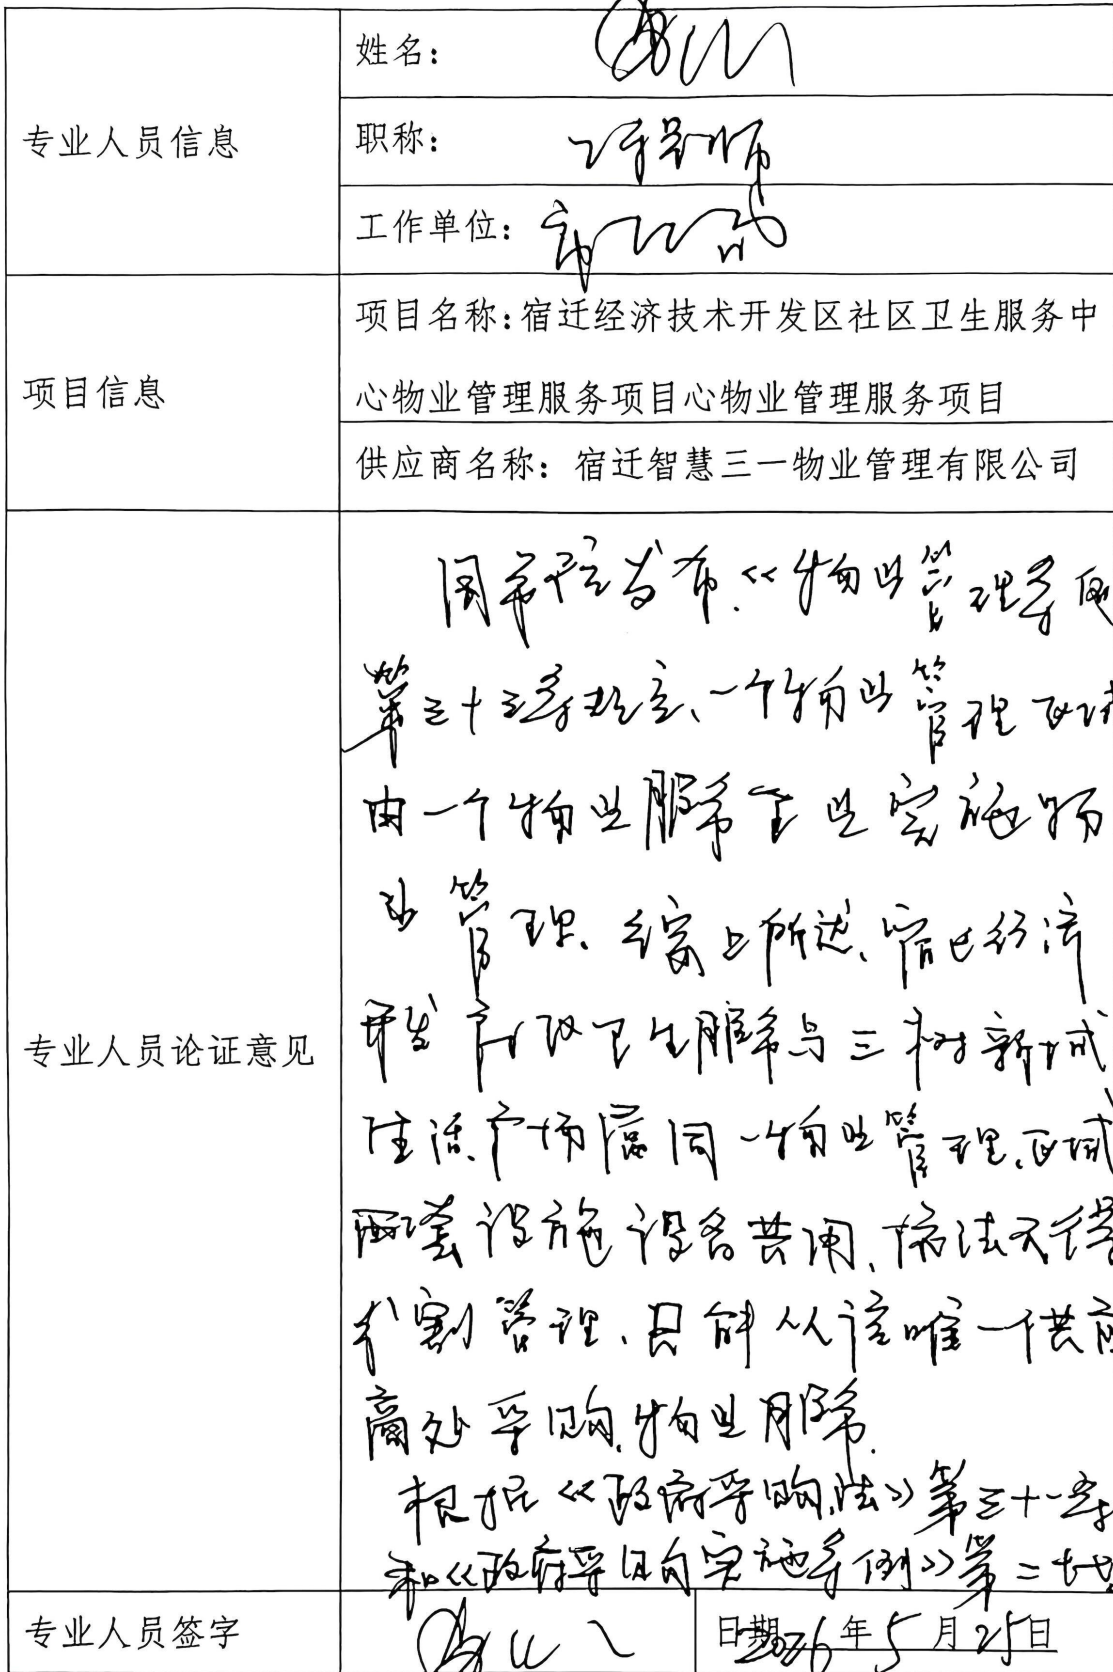 姓名：
专业人员信息
职称： 工程师
工作单位：
项目名称：宿迁经济技术开发区社区卫生服务中
项目信息
心物业管理服务项目心物业管理服务项目
供应商名称：宿迁智慧三一物业管理有限公司
国务院发布《物业管理条例
第三十三条规定、一个物业管理区域
由一个物业服务企业实施物
业管理、综上所述、宿迁经济
开发区卫生服务与三树新城
专业人员论证意见
生活广场属同一物业管理区域
配套设施设备共用、依法不得
分割管理、只能从该唯一供应
商处采购物业服务.
根据《政府采购法》第三十一条
和《政府采购实施条例》第二十七
专业人员签字
日期2026年5月25日